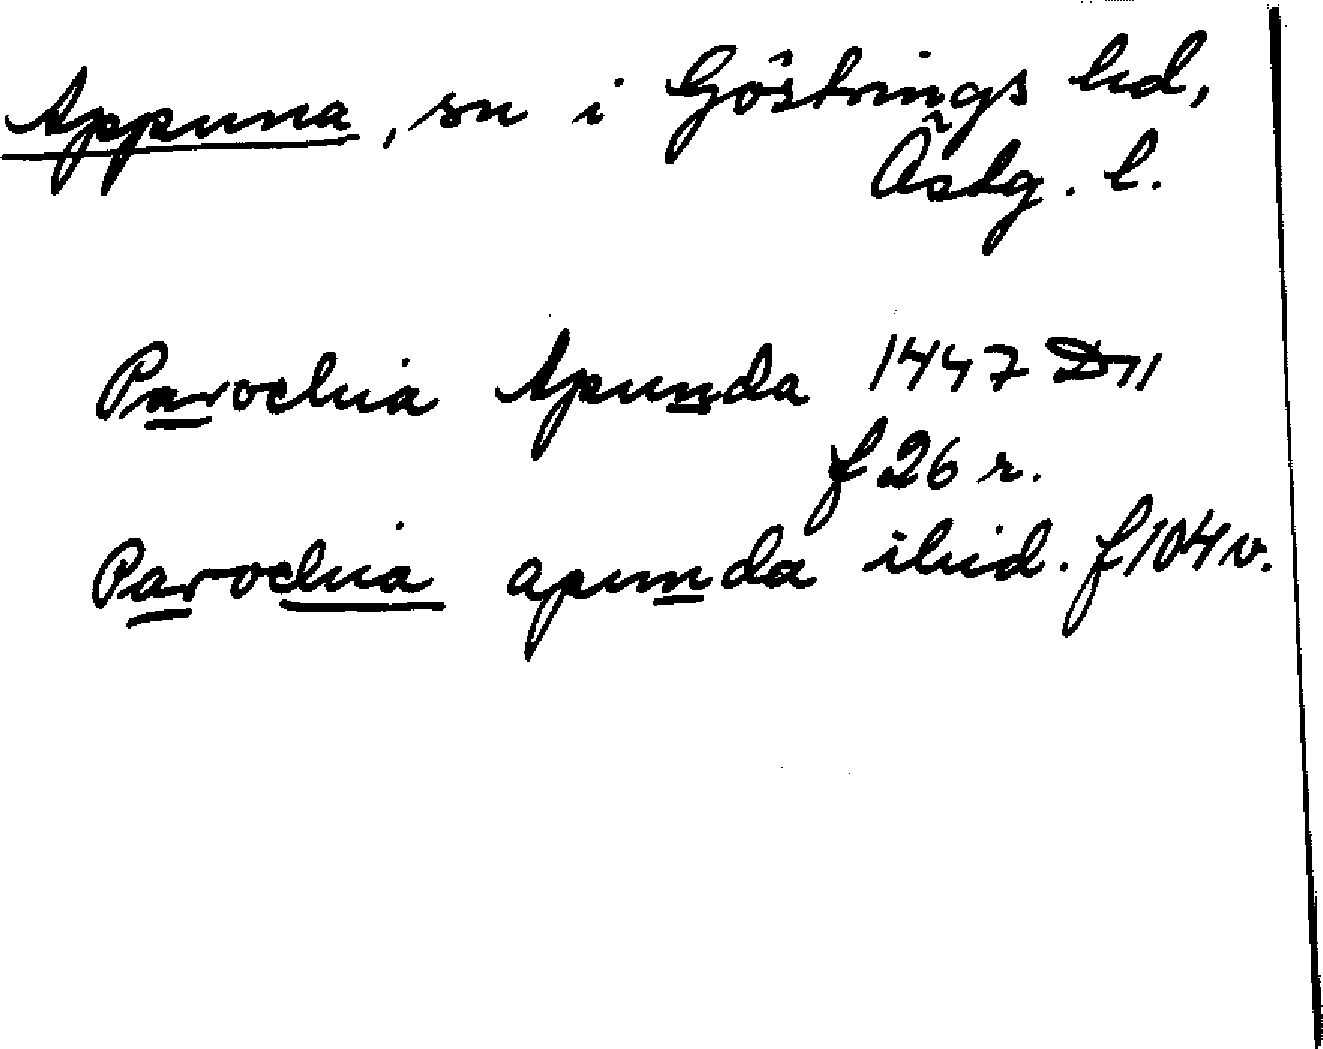 Appuna, sn i Göstrings hd,
Östg. l.
Parochia Apunda 1447 D 11
f 26 r.
Parochia apunda ibid. f 104 v.